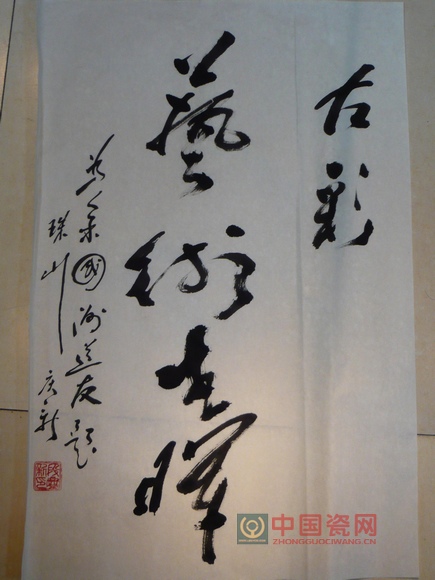 古彩
藝術生暉
國 道友题
珠山
中国瓷网
ZHONGGUOCIWANG.CN